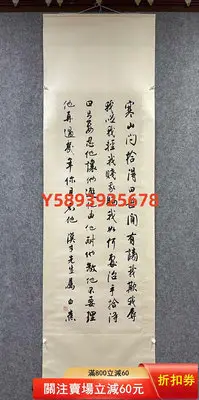 寒山问拾得曰世间有謗我欺我辱
我咲我輕我賤我騙我如何處治乎拾得
曰只要忍他讓他避他由他耐他敬他不要理
他再過幾年你且看他 先生屬 白蕉
Y15893925678
滿800立減60
關注賣場立減60元
折扣券